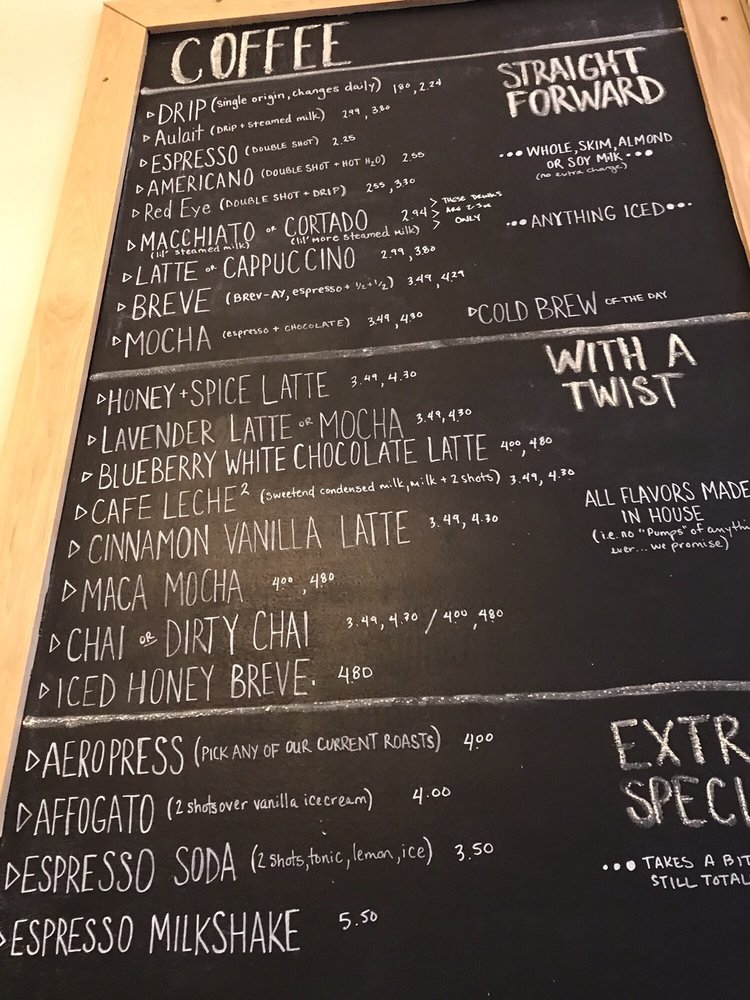 COFFEE
▹DRIP (single origin, changes daily) 180, 2.24
▹Aulait (DRIP + steamed milk) 299, 380
▹ESPRESSO (DOUBLE SHOT) 2.25
▹AMERICANO (DOUBLE SHOT + HOT H₂O) 2.55
▹Red Eye (DOUBLE SHOT + DRIP) 255, 330
▹MACCHIATO or CORTADO 294
(lil' steamed milk) (lil' more steamed milk)
> THESE DRINKS
> ARE 2-3 oz
> ONLY
▹LATTE or CAPPUCCINO 2.99, 380
▹BREVE (BREV-AY, espresso + ½+½) 3.49, 429
▹MOCHA (espresso + CHOCOLATE) 3.49, 430
STRAIGHT
FORWARD
••• WHOLE, SKIM, ALMOND
OR SOY MILK •••
(no extra charge)
••• ANYTHING ICED •••
▹COLD BREW OF THE DAY
▹HONEY + SPICE LATTE 3.49, 4.30
▹LAVENDER LATTE OR MOCHA 3.49, 430
▹BLUEBERRY WHITE CHOCOLATE LATTE 400, 480
▹CAFE LECHE² (sweetend condensed milk, milk + 2 shots) 3.49, 4.30
▹CINNAMON VANILLA LATTE 3.49, 4.30
▹MACA MOCHA 400, 480
▹CHAI OR DIRTY CHAI 3.49, 4.30 / 400, 480
▹ICED HONEY BREVE. 480
WITH A
TWIST
ALL FLAVORS MADE
IN HOUSE
(i.e. no "Pumps" of anyth
ever... we promise)
▹AEROPRESS (PICK ANY OF OUR CURRENT ROASTS) 400
▹AFFOGATO (2 shots over vanilla icecream) 4.00
▹ESPRESSO SODA (2 shots, tonic, lemon, ice) 3.50
▹ESPRESSO MILKSHAKE 5.50
EXTR
SPECI
••• TAKES A BIT
STILL TOTAL